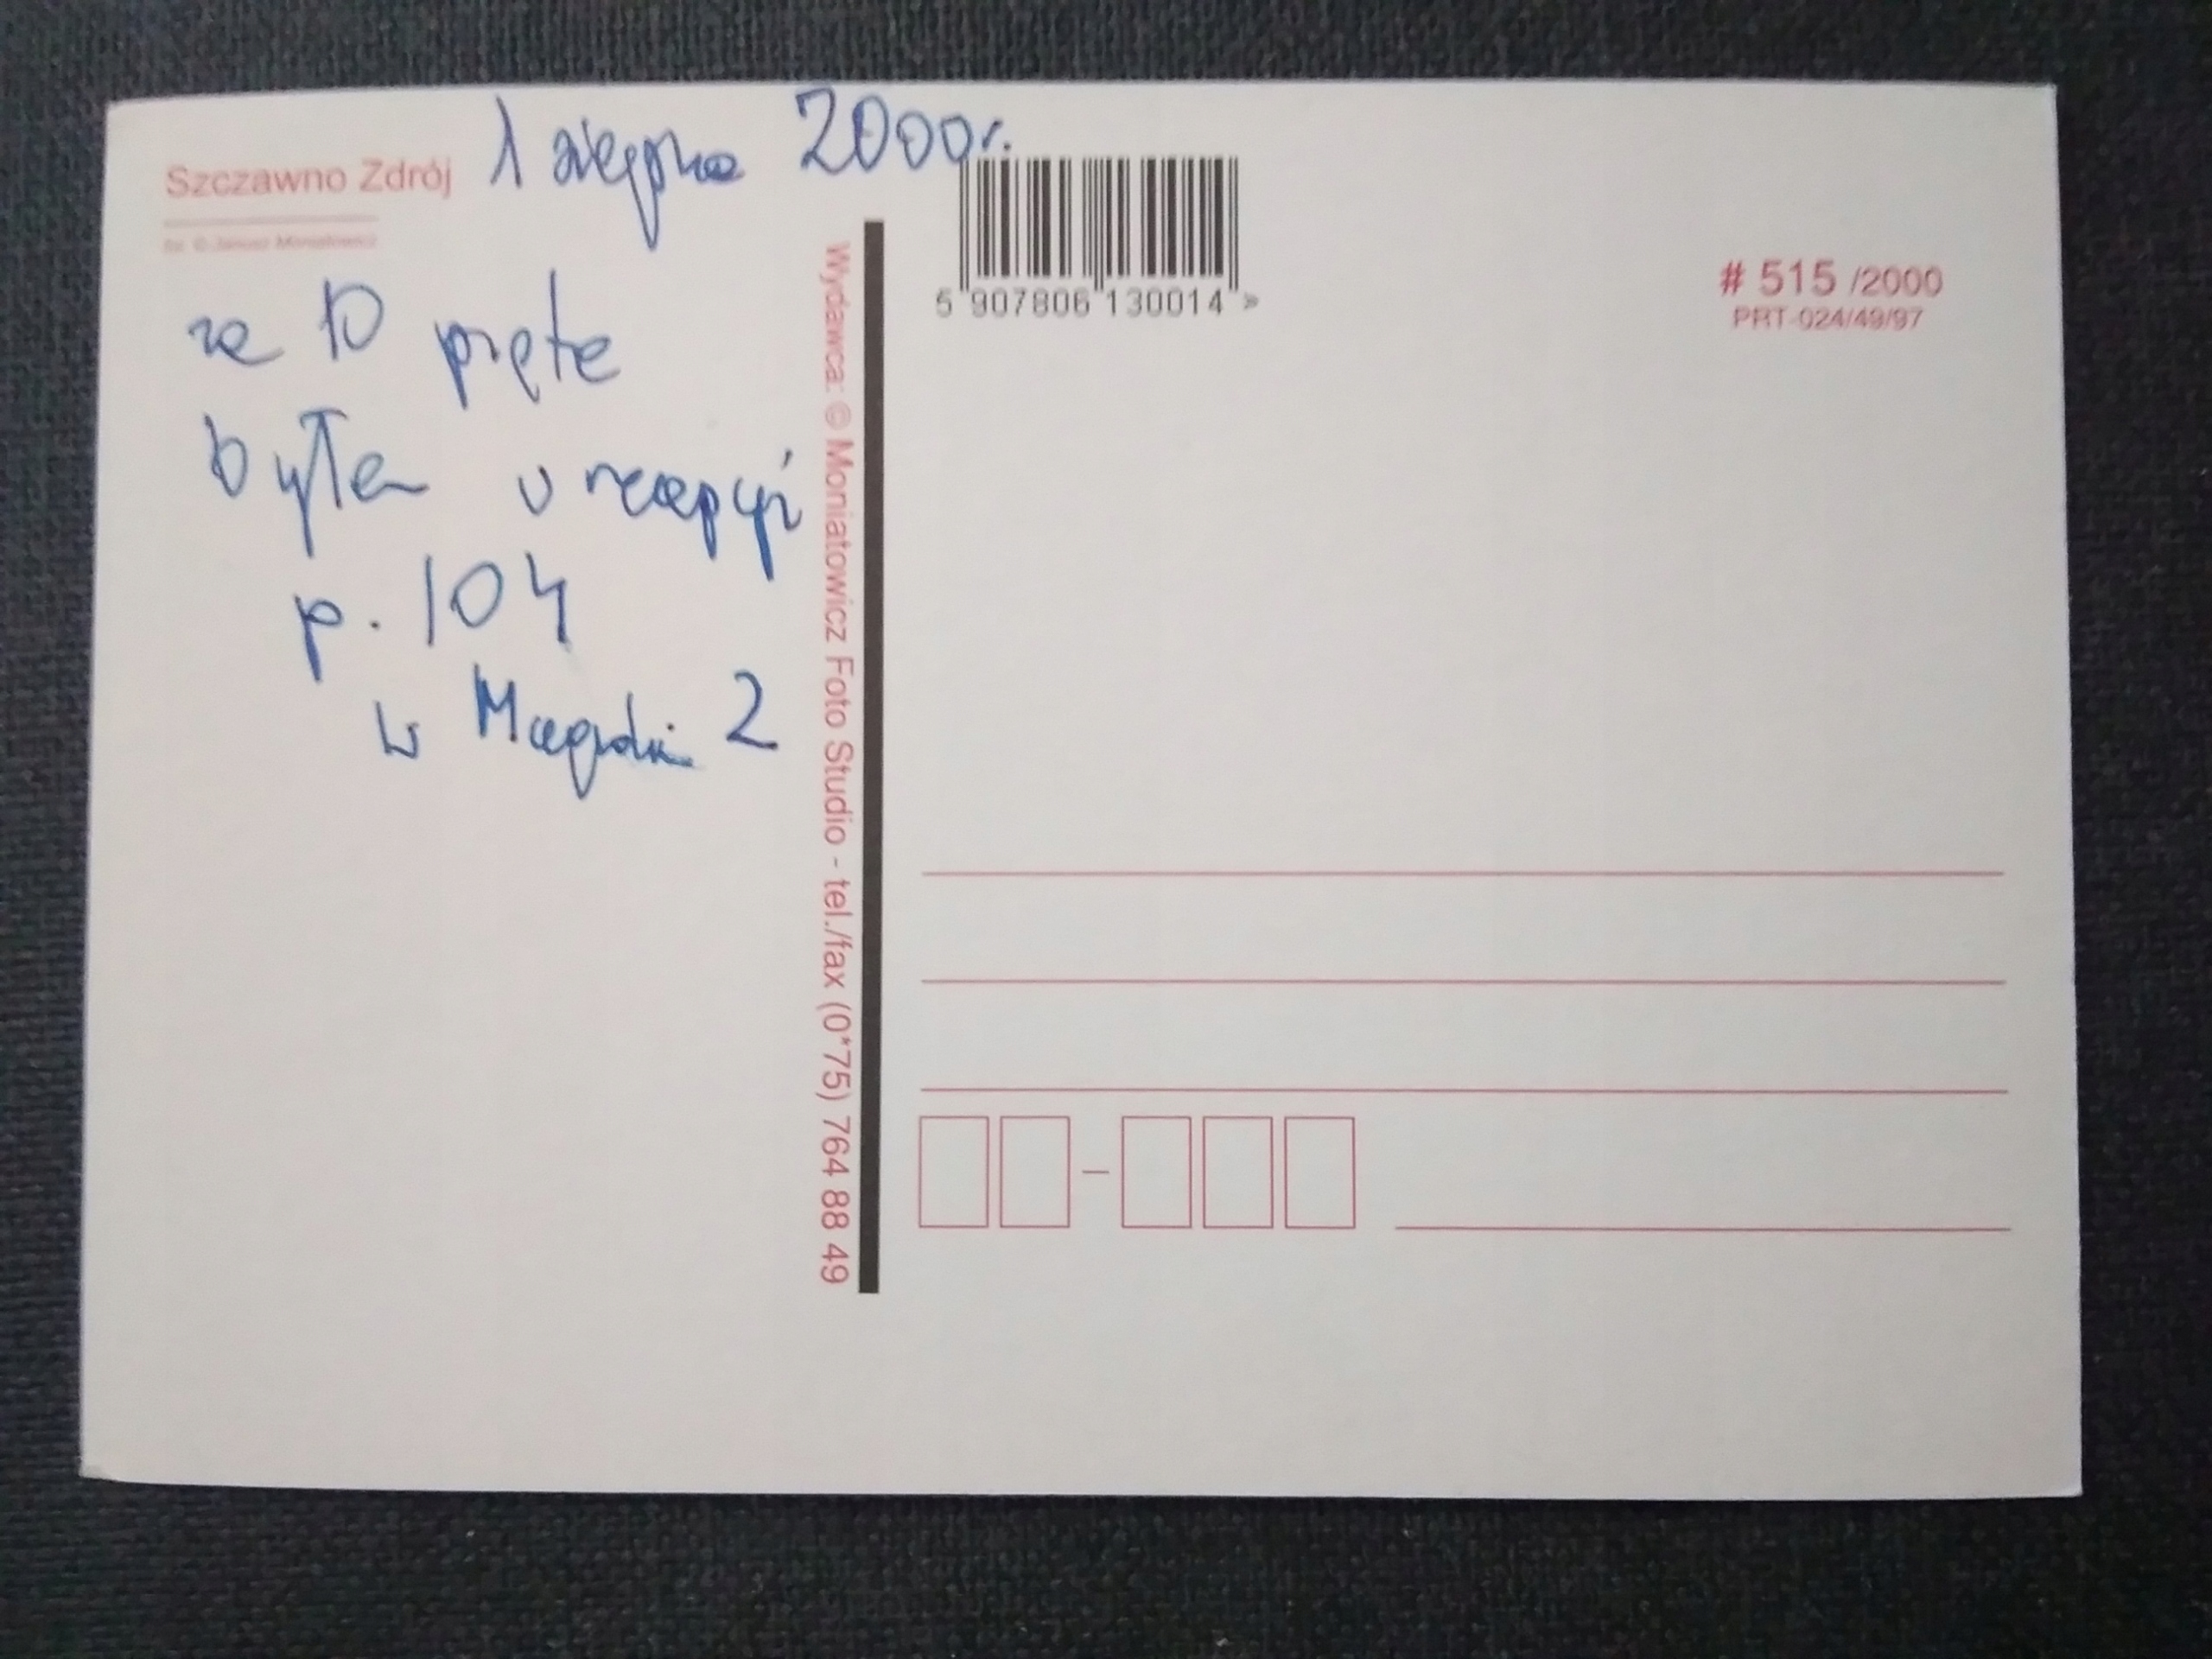 Szczawno Zdrój
1 sierpnia 2000r.
fot. © Janusz Moniatowicz
za 10 piąta
byłem w recepcji
p. 104
w Magdzie 2
Wydawca: © Moniatowicz Foto Studio - tel./fax (0*75) 764 88 49
5 907806 130014 >
# 515 /2000
PRT-024/49/97